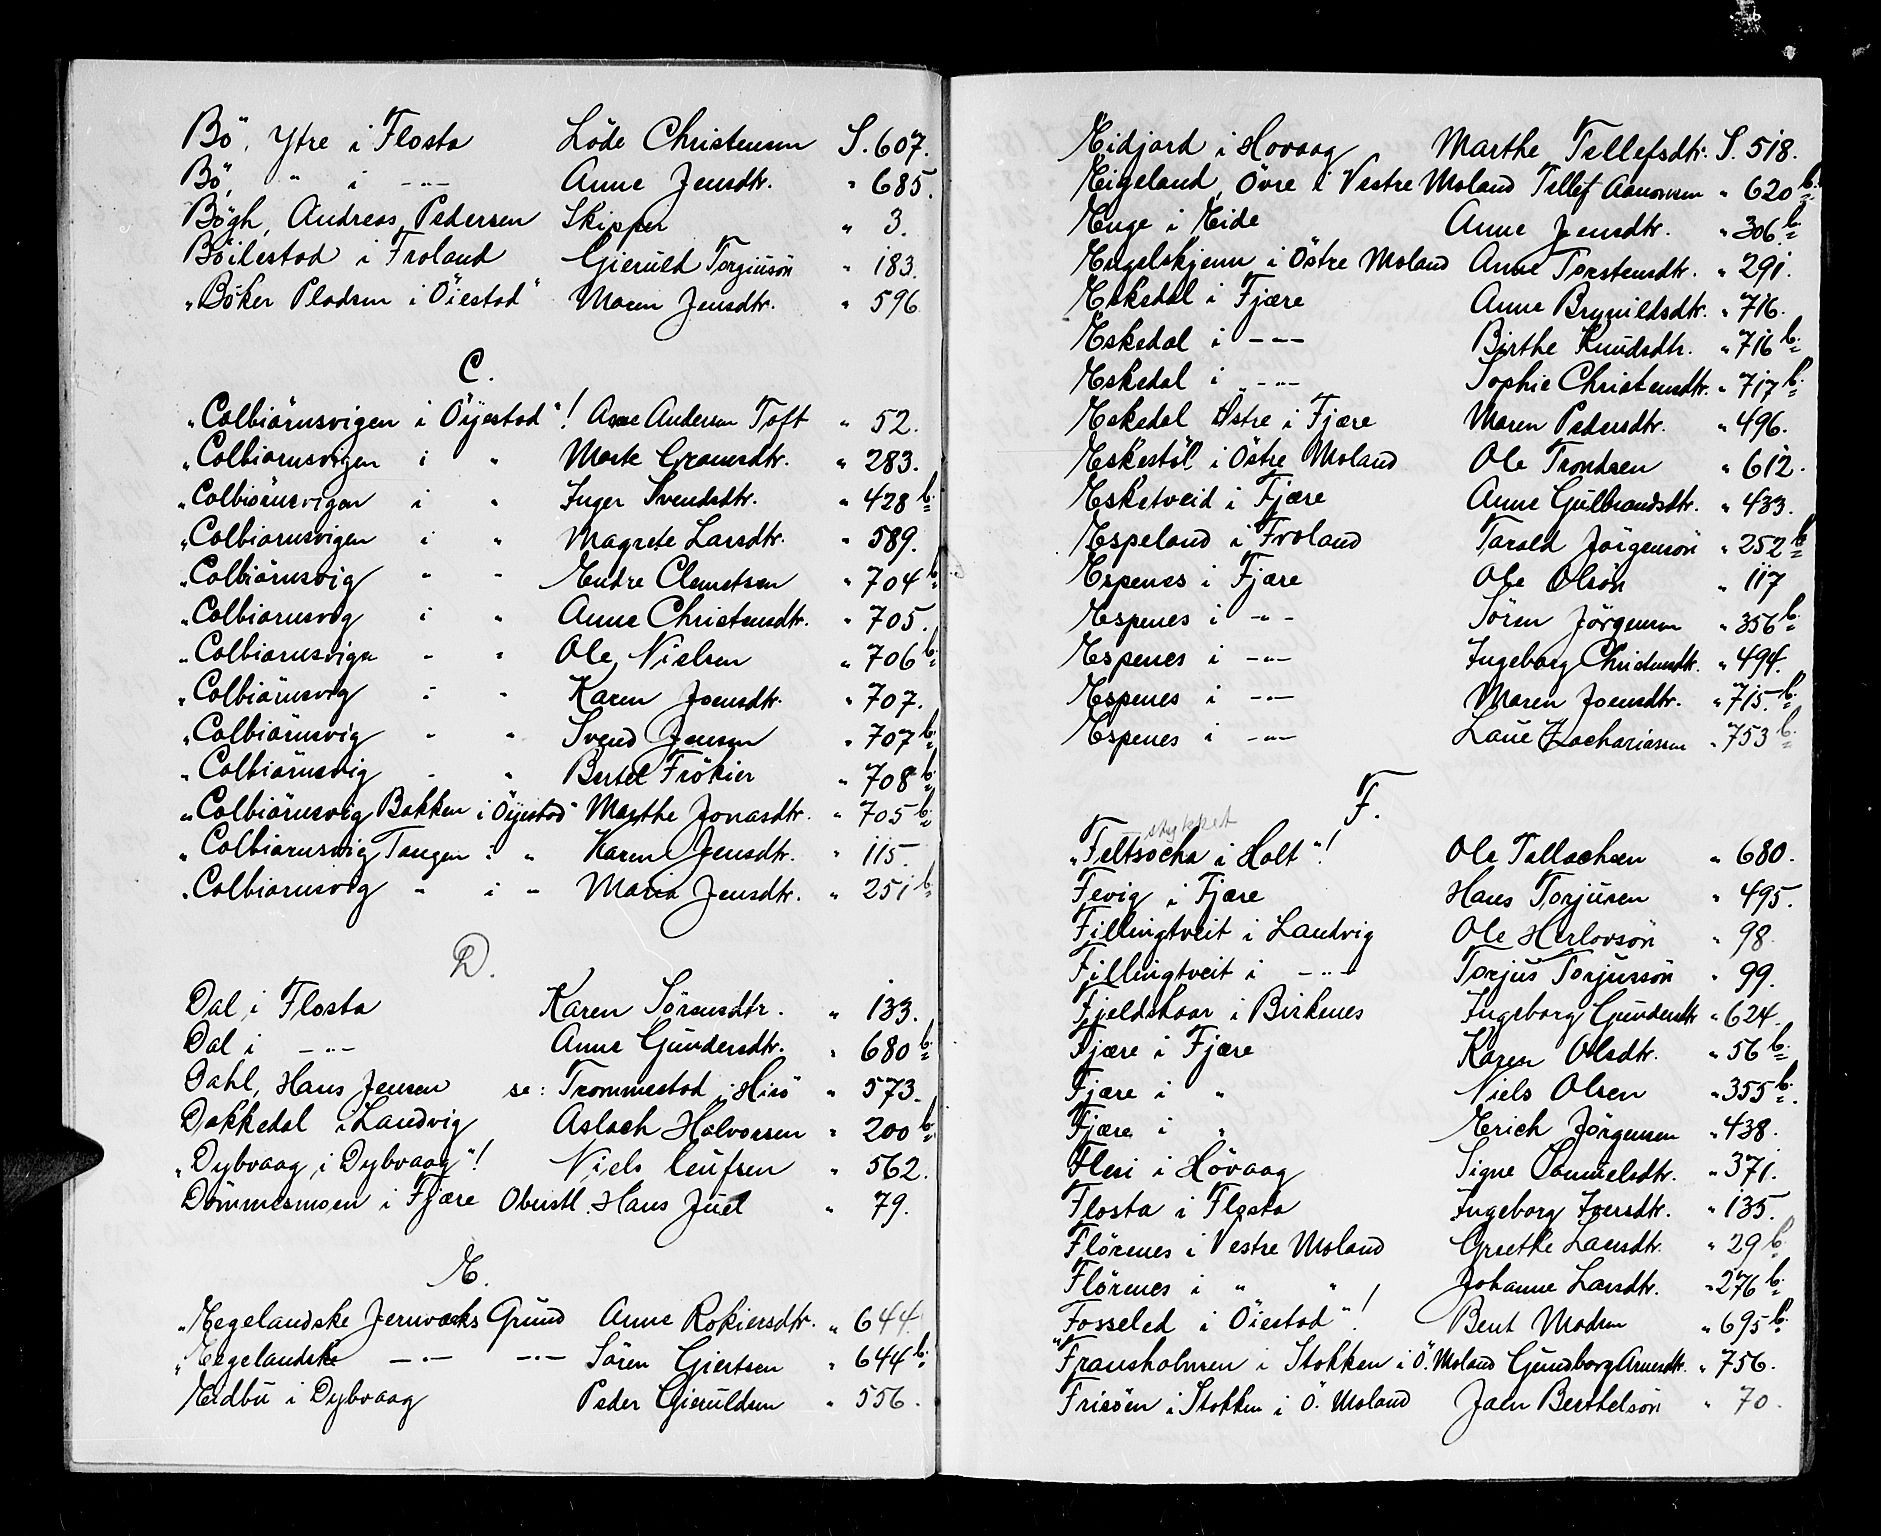 Bö, Ytre i Flosta Löde Christensen S. 607.
Bö, " i -"- Anne Jensdtr. " 685.
Bögh, Andreas Pedersen Skipper " 3.
Böilestad i Froland Gieruld Torgiusön " 183.
"Böker Pladsen i Öiestad" Maren Jensdtr. " 596
C.
"Colbiörnsvigen i Öÿestad"! Aase Andersen Toft " 52.
"Colbiornsvigen i " Marte Gramsdtr. " 283.
"Colbiörnsvigen i " Inger Svendsdtr. " 428 b.
"Colbiornsvigen i " Magrete Larsdtr. " 589.
"Colbiörnsvig " " Endre Clemetsen " 704 b.
"Colbiornsvig i " Anne Christensdtr. " 705.
"Colbiornsvign " " Ole Nielsen " 706 b.
"Colbiörnsvig " " Karen Joensdtr. " 707.
"Colbiörnsvig " " Svend Jensen " 707 b.
"Colbiörnsvig " " Bertel Frökier " 708 b.
"Colbiörnsvig Bakken i Öÿestad" Marthe Jonasdtr. " 705 b.
"Colbiörnsvig Tangen i " Karen Jensdtr. " 115.
"Colbiornsvig " i " Maria Jensdtr. " 251 b.
D.
Dal i Flosta Karen Sörensdtr. " 133.
Dal i -"- Anne Gundersdtr. " 680 b.
Dahl, Hans Jensen se: Trommestad i Hisö " 573.
Dakkedal i Landvig Aslach Halvorsen " 200 b.
"Dybvaag i Dybvaag"! Niels Leufsen " 562.
Dömmesmoen i Fjære Oberstl. Hans Juel " 79.
E.
"Eegelandske Jernværks Grund Anne Rokiersdtr. " 644.
"Eegelandske -"- -"- Sören Giertsen " 644 b.
Eidbu i Dybvaag Peder Gieruldsen " 556.
Eidjord i Hovaag Marthe Tellefsdtr. S. 518.
Eigeland, Övre i Vestre Moland Tellef Aanonsen " 620 b.
Enge i Eide Anne Jensdtr. " 306 b.
Engelskjenn i Östre Moland Anne Torstensdtr. " 291.
Eskedal i Fjære Anne Brynildsdtr. " 716.
Eskedal i -"- Birthe Knudsdtr. " 716 b.
Eskedal i -"- Sophie Christensdtr. " 717 b.
Eskedal Östre i Fjære Maren Pedersdtr. " 496.
Eskestöl i Östre Moland Ole Trondsen " 612.
Esketveid i Fjære Anne Gulbrandsdtr. " 433.
Espeland i Froland Tarald Jörgensön " 252 b
Espenes i Fjære Ole Olsön " 117
Espenes i -"- Sören Jörgensen " 356 b.
Espenes i -"- Ingeborg Christensdtr. " 494.
Espenes i -"- Maren Joensdtr. " 715. b.
Espenes i -"- Laue Zachariasen " 753 b.
F.
stykket
"Feltsocka i Holt"! Ole Tellachsen " 680.
Fevig i Fjære Hans Torjusen " 495.
Fillingtveit i Landvig Ole Herlovsön " 98
Fillingtveit i -"- Torjus Torjussön " 99.
Fjeldskaar i Birkenes Ingeborg Gundersdtr " 624.
Fjære i Fjære Karen Olsdtr. " 56 b.
Fjære i " Niels Olsen " 355 b.
Fjære i " Erich Jörgensen " 438.
Flesi i Hövaag Signe Samuelsdtr. " 371.
Flosta i Flosta Ingeborg Iversdtr. " 135.
Flörenes i Vestre Moland Grethe Larsdtr. " 29 b.
Flörenes i " " Johanne Larsdtr. " 276 b.
"Fosseled i Öiestad"! Bent Madsen " 695 b.
Fransholmen i Stokken i Ö. Moland Gundborg Arnesdtr. " 756.
Frisöen i Stokken i Ö. Moland Jaen Berthelsön " 70.